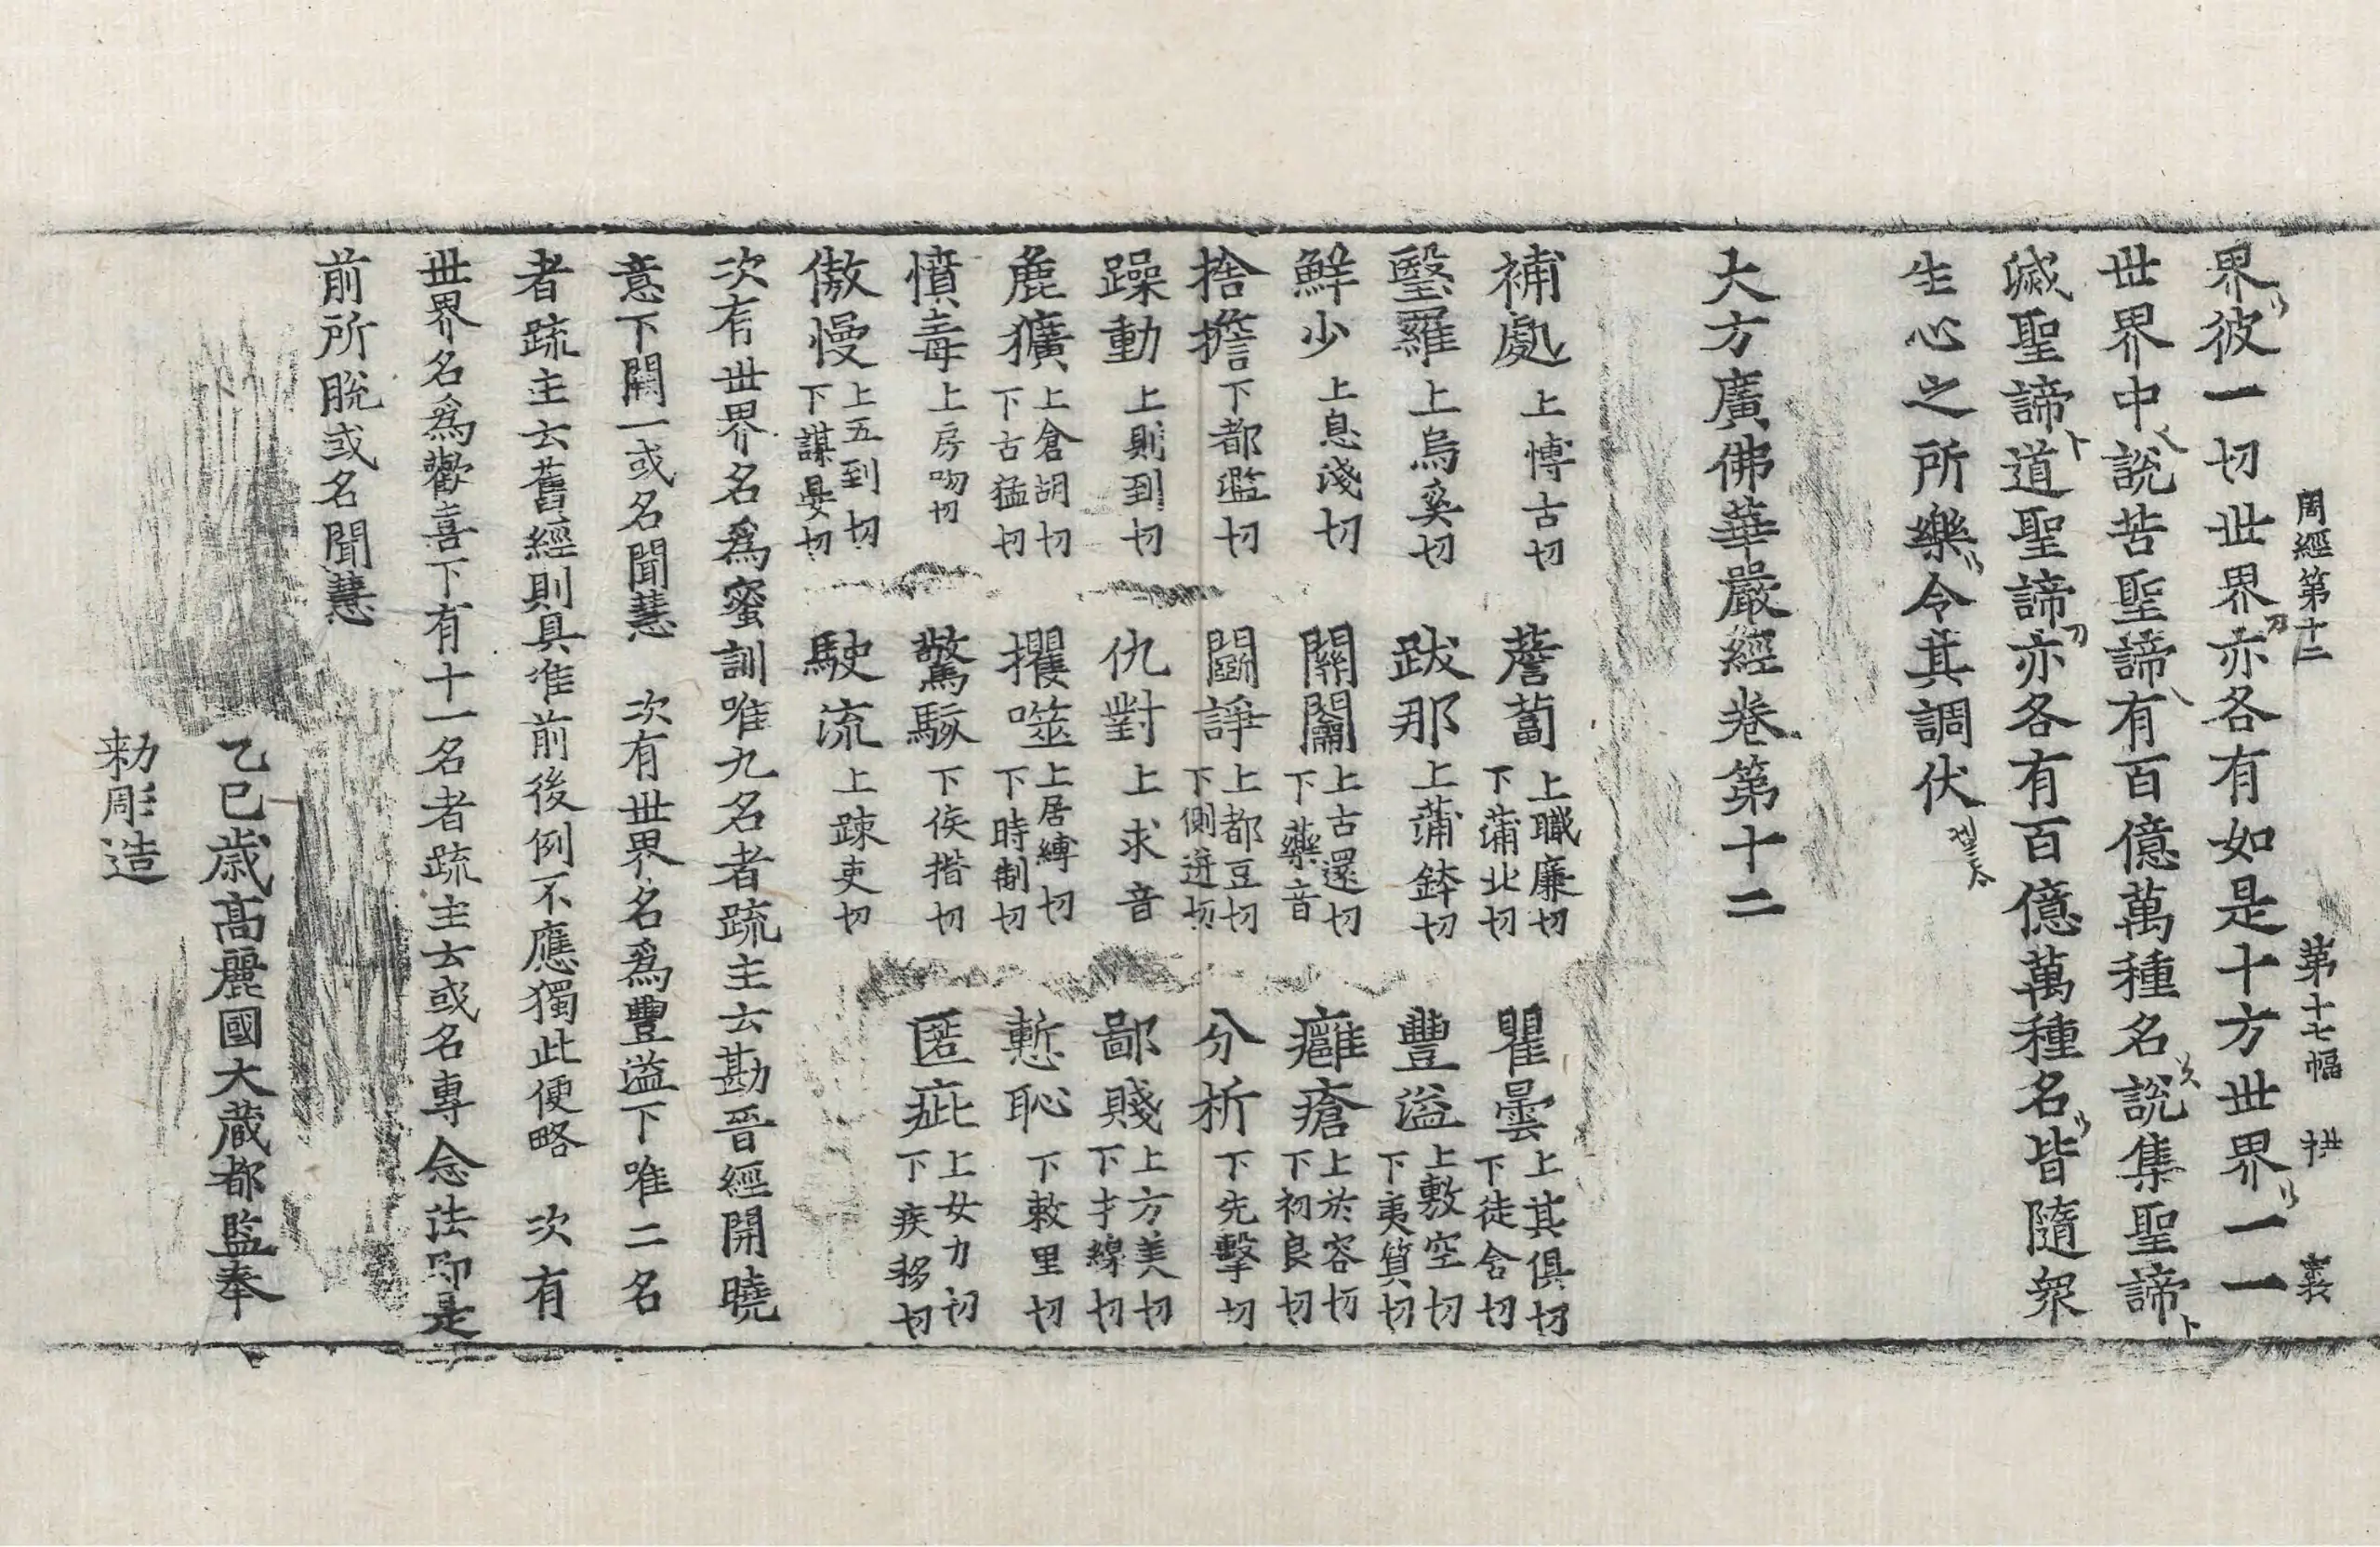 周經第十二 第十七幅 拱
界彼一切世界亦各有如是十方世界一一
世界中說苦聖諦有百億萬種名說集聖諦
滅聖諦道聖諦亦各有百億萬種名皆隨衆
生心之所樂令其調伏
大方廣佛華嚴經卷第十二
補處 上博古切 薝蔔 上職廉切 下蒲北切 瞿曇 上其俱切 下徒含切
瑿羅 上烏奚切 跋那 上蒲鉢切 豐溢 上敷空切 下夷質切
鮮少 上息淺切 關闟 上古還切 下藥音 癰瘡 上於容切 下初良切
捨擔 下都濫切 鬪諍 上都豆切 下側迸切 分析 下先擊切
躁動 上則到切 仇對 上求音 鄙賤 上方美切 下才線切
麁獷 上倉胡切 下古猛切 攫噬 上居縛切 下時制切 慙恥 下敕里切
憤毒 上房吻切 驚駭 下侯揩切 匿疵 上女力切 下疾移切
傲慢 上五到切 下謀晏切 駛流 上疎吏切
次有世界名爲蜜訓唯九名者疏主云勘晉經開曉
意下闕一或名聞慧 次有世界名爲豐溢下唯二名
者疏主云舊經則具准前後例不應獨此便略 次有
世界名爲歡喜下有十一名者疏主云或名專念法即是
前所脫或名聞慧
乙巳歲高麗國大藏都監奉
勅彫造